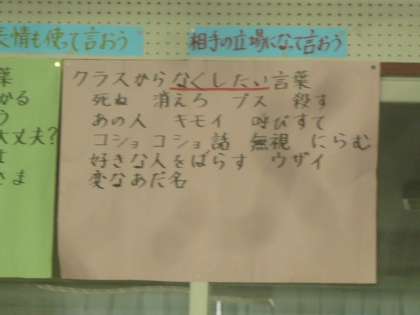 表情も使って言おう
相手の立場になって言おう
葉
かる
う
大丈夫?
は
さま
クラスからなくしたい言葉
死ね 消えろ ブス 殺す
あの人 キモイ 呼びすて
コショコショ話 無視 にらむ
好きな人をばらす ウザイ
変なあだ名